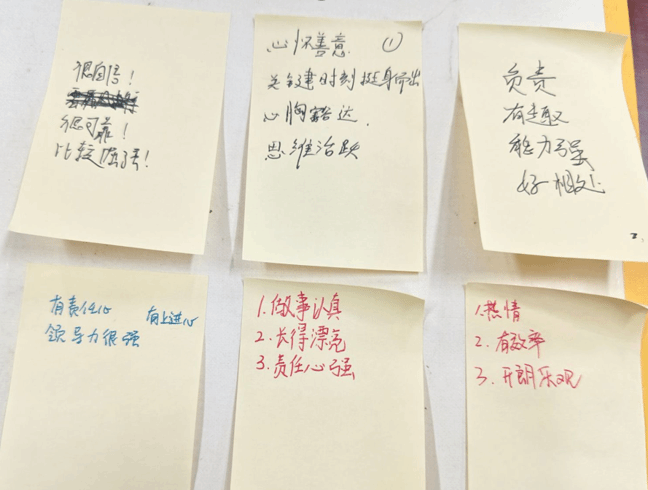 很自信！
很可靠！
比较倔强！
心怀善意 ①
关键时刻挺身而出
心胸豁达，
思维活跃
负责
有趣
能力强
好相处
2
有责任心 有上进心
领导力很强
1. 做事认真
2. 长得漂亮
3. 责任心强
1. 热情
2. 有效率
3. 开朗乐观